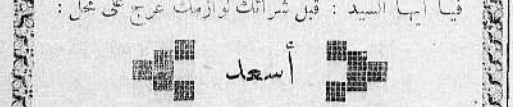 فيا أيها السيد : قبل شرائك لوازمك عرج على محل :
أسعد